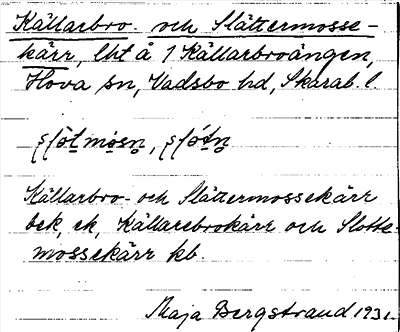 Källarbro och Slättermosse-
kärr, lht å 1 Källarbroängen,
Hova sn, Vadsbo hd, Skarab. l.
Källarbro- och Slättermossekärr
bek, ek, Källarebrokärr och Slotte-
mossekärr kb.
Maja Bergstrand 1931.